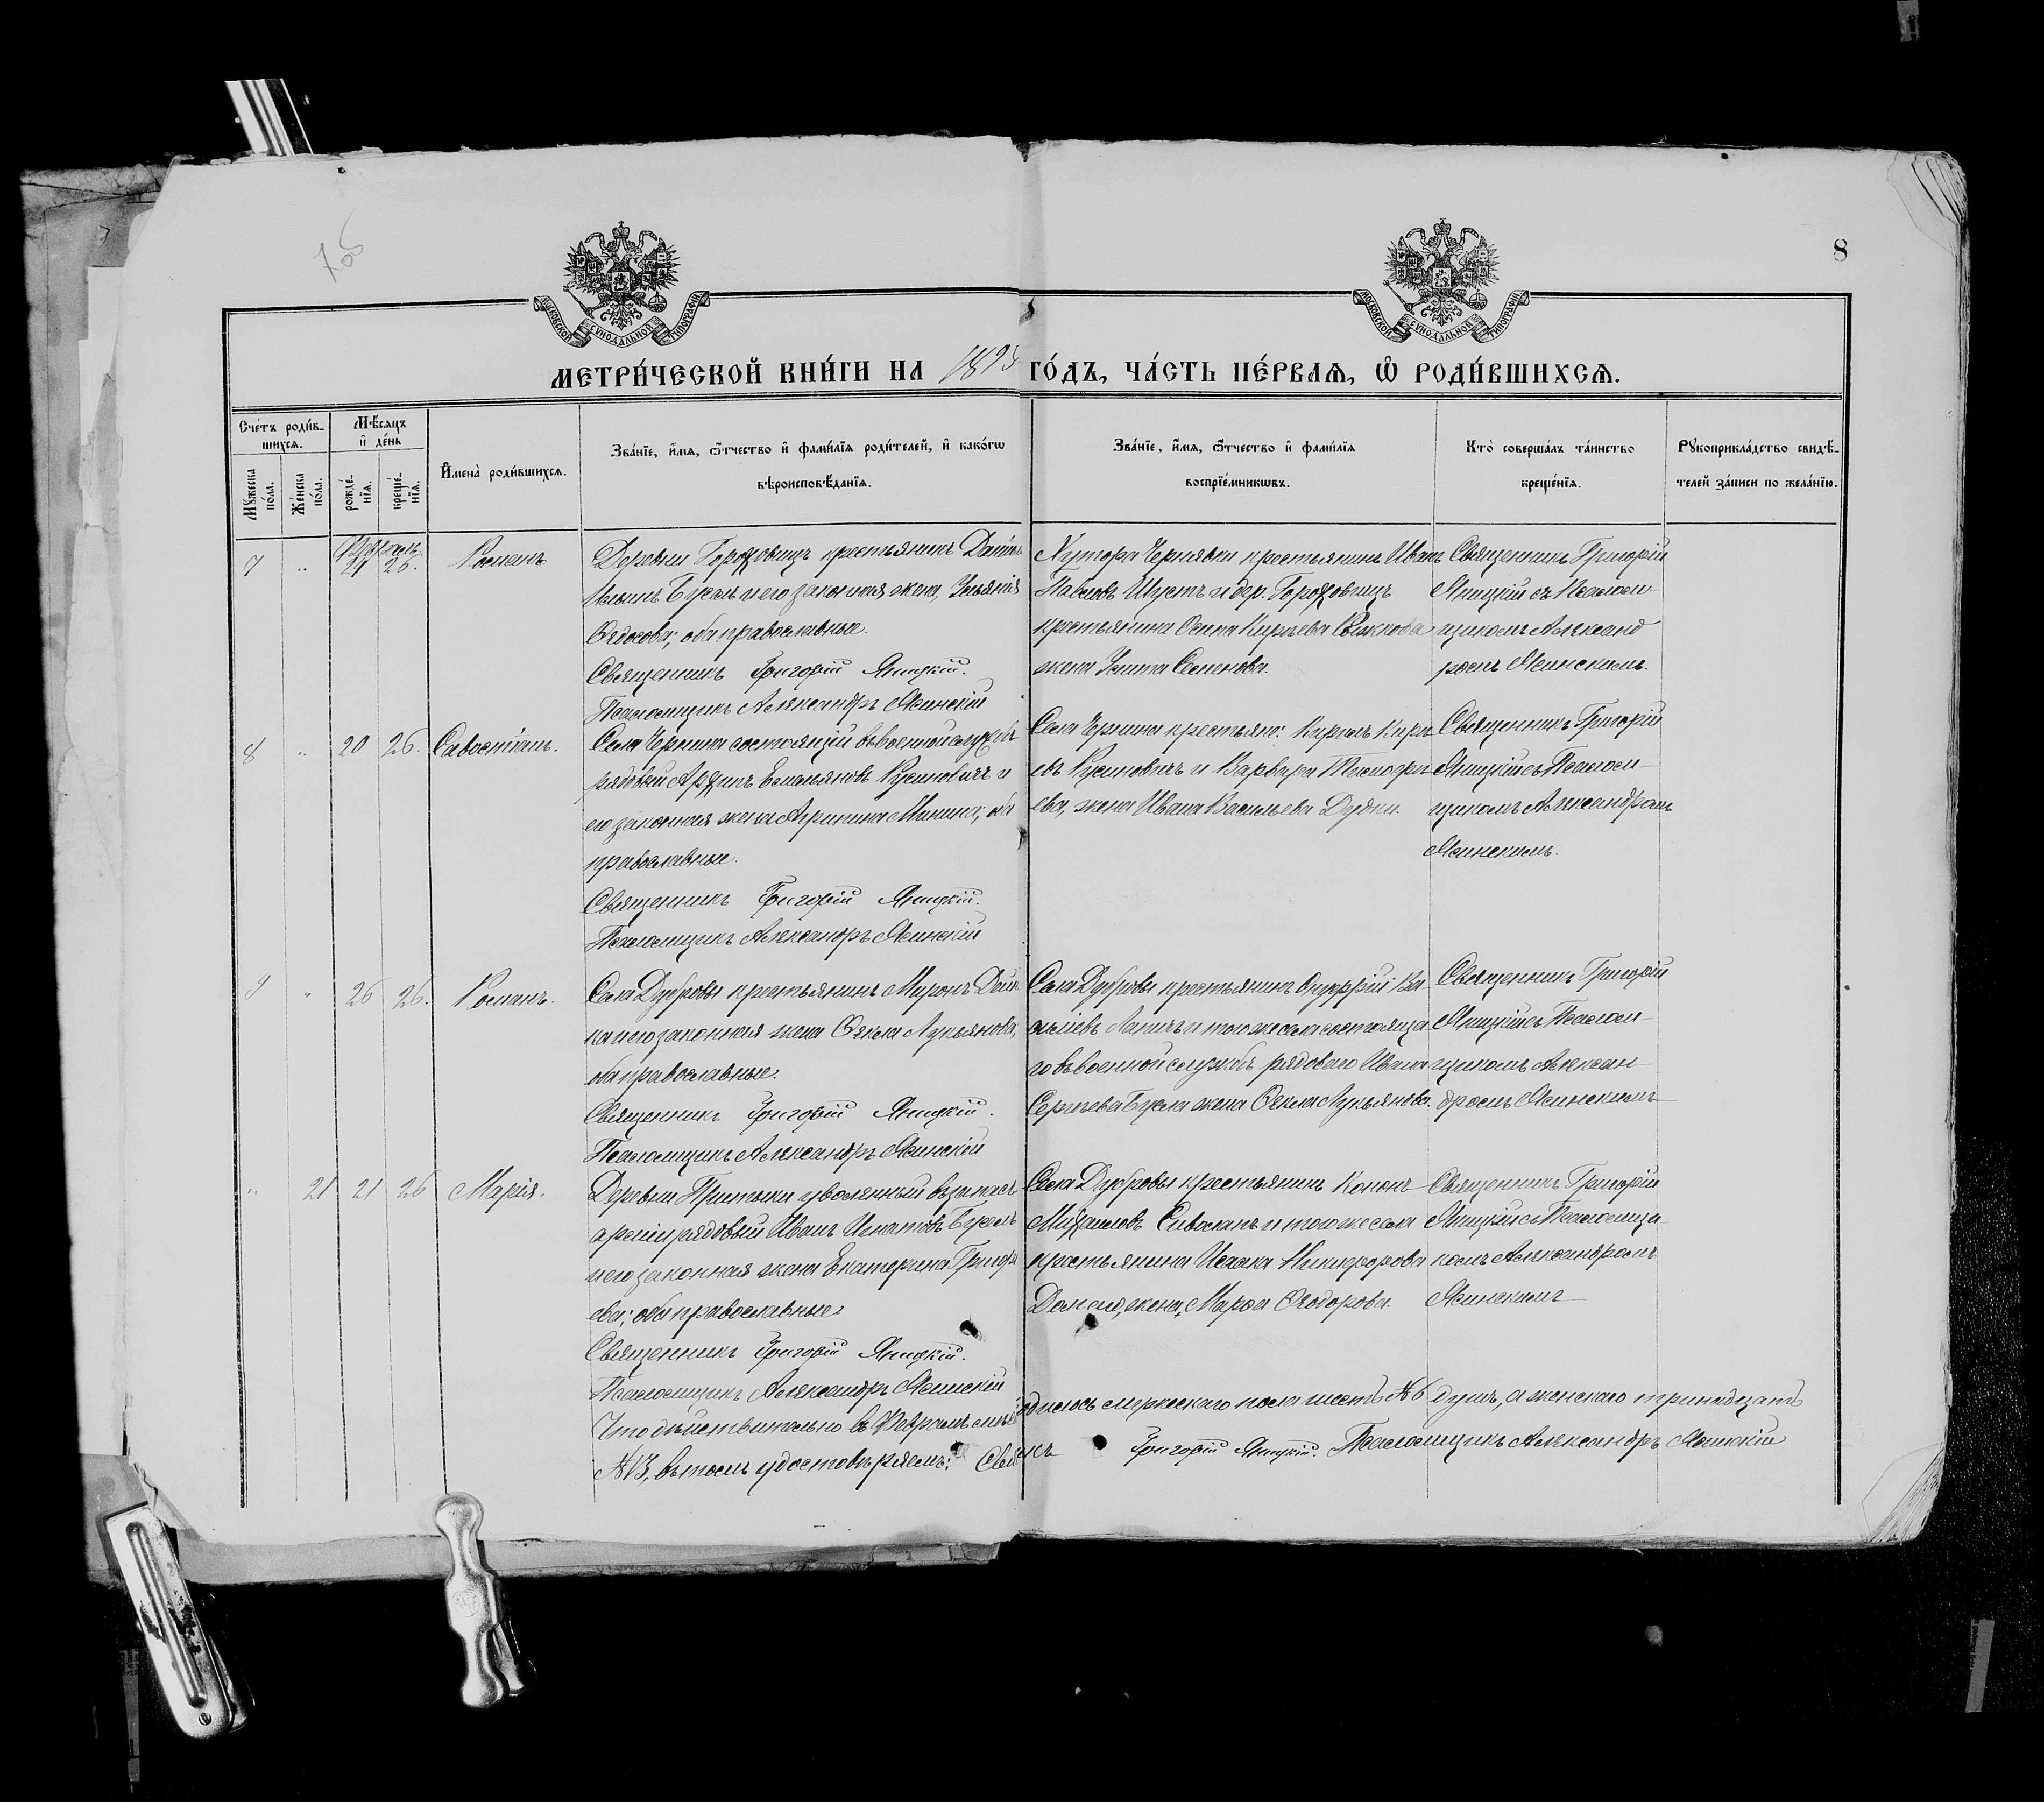 8
МОСКОВСКОЙ СѴНОДАЛЬНОЙ ТИПОГРАФІИ
МОСКОВСКОЙ СѴНОДАЛЬНОЙ ТИПОГРАФІИ
МЕТРИ́ЧЕСКОЙ КНИ́ГИ НА 1895 ГО́ДЪ, ЧА́СТЬ ПЕ́РВАѦ, Ѡ҆ РОДИ́ВШИХСѦ.
Сче́тъ роди́в-
шихсѧ.
Мꙋ́жеска по́ла.
Же́нска по́ла.
Мѣ́сѧцъ
и҆ де́нь
рожде́-
нїѧ.
креще́-
нїѧ.
И҆мена̀ роди́вшихсѧ.
Зва́нїе, и҆́мѧ, ѻ҆́тчество и҆ фами́лїѧ роди́телей, и҆ како́гѡ
вѣроисповѣ́данїѧ.
Зва́нїе, и҆́мѧ, ѻ҆́тчество и҆ фами́лїѧ
воспрїе́мникѡвъ.
Кто̀ соверша́лъ та́инство
креще́нїѧ.
Рꙋкоприкла́дство свидѣ́-
телей за́писи по жела́нїю.
7 " Февраль 21 26. Романъ
Деревни Гороховищъ крестьянинъ Даніил
Ильинъ Бусел и его законная жена Ульянія
Ѳядосова; оба православные.
Священникъ Григорій Яницкій.
Псаломщикъ Александръ Ясинскій
Хутора Чернявки крестьянинъ Иванъ
Павловъ Шустъ и дер. Гороховищъ
крестьянина Осипа Кирѣева
жена Улита Семенова.
Священникъ Григорій
Яницкій съ Псалом-
щикомъ Александ
ромъ Ясинскимъ.
8 " 20 26. Савостіанъ.
Села Чернина состоящій въ военной службѣ
рядовой Архипъ Емельяновъ Русиновичъ и
его законная жена Агрипина Минина; оба
православные.
Священникъ Григорій Яницкій.
Псаломщикъ Александръ Ясинскій
Села Чернина крестьяне: Кирилъ Кирѣ
евъ Русиновичъ и Варвара
ева, жена Ивана Васильева Дудки.
Священникъ Григорій
Яницкій съ Псалом-
щикомъ Александромъ
Ясинскимъ.
9 " 26 26. Романъ.
Села Дубровы крестьянинъ Миронъ Дей
ка и его законная жена Ѳекла Лукьянова,
оба православные.
Священникъ Григорій Яницкій.
Псаломщикъ Александръ Ясинскій
Села Дубровы крестьянинъ Онуфрій Ва-
силіевъ Лапичъ и того же села состояща
го въ военной службѣ рядового Ивана
Сергѣева Бусла жена Ѳекла Лукьянова.
Священникъ Григорій
Яницкій съ Псалом-
щикомъ Алексан-
дромъ Ясинскимъ
" 21 21 26 Марія.
Деревни Притыки уволенный въ запасъ
арміи рядовый Иванъ Игнатовъ Буселъ
и его законная жена Екатерина Григорь
ева; оба православные.
Священникъ Григорій Яницкій.
Псаломщикъ Александръ Ясинскій
Села Дубровы крестьянинъ Кононъ
Михайловъ Сивакъ и того же села
крестьянина Исаака Никифорова
жена, Марѳа Ѳеодорова.
Священникъ Григорій
Яницкій съ Псаломщи
комъ Александромъ
Ясинскимъ
Что дѣйствительно въ Февралѣ мѣс одилось мужескаго пола шесть № 6 душъ, а женскаго тринадцать
№ 13, въ томъ удостовѣряемъ: Григорій Яницкій. Псаломщикъ Александръ Ясинскій